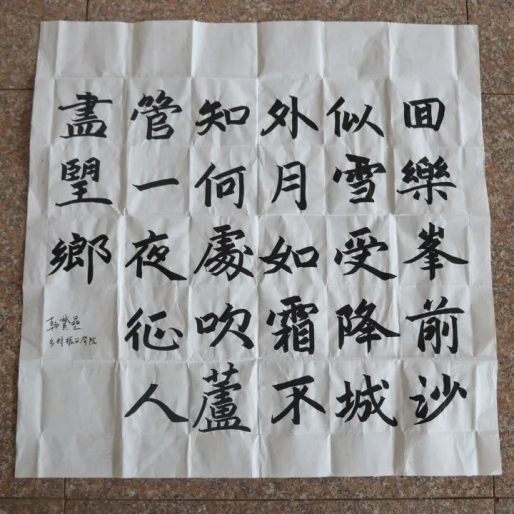 回樂峯前沙
似雪受降城
外月如霜不
知何處吹蘆
管一夜征人
盡望鄉
乡村振兴学院